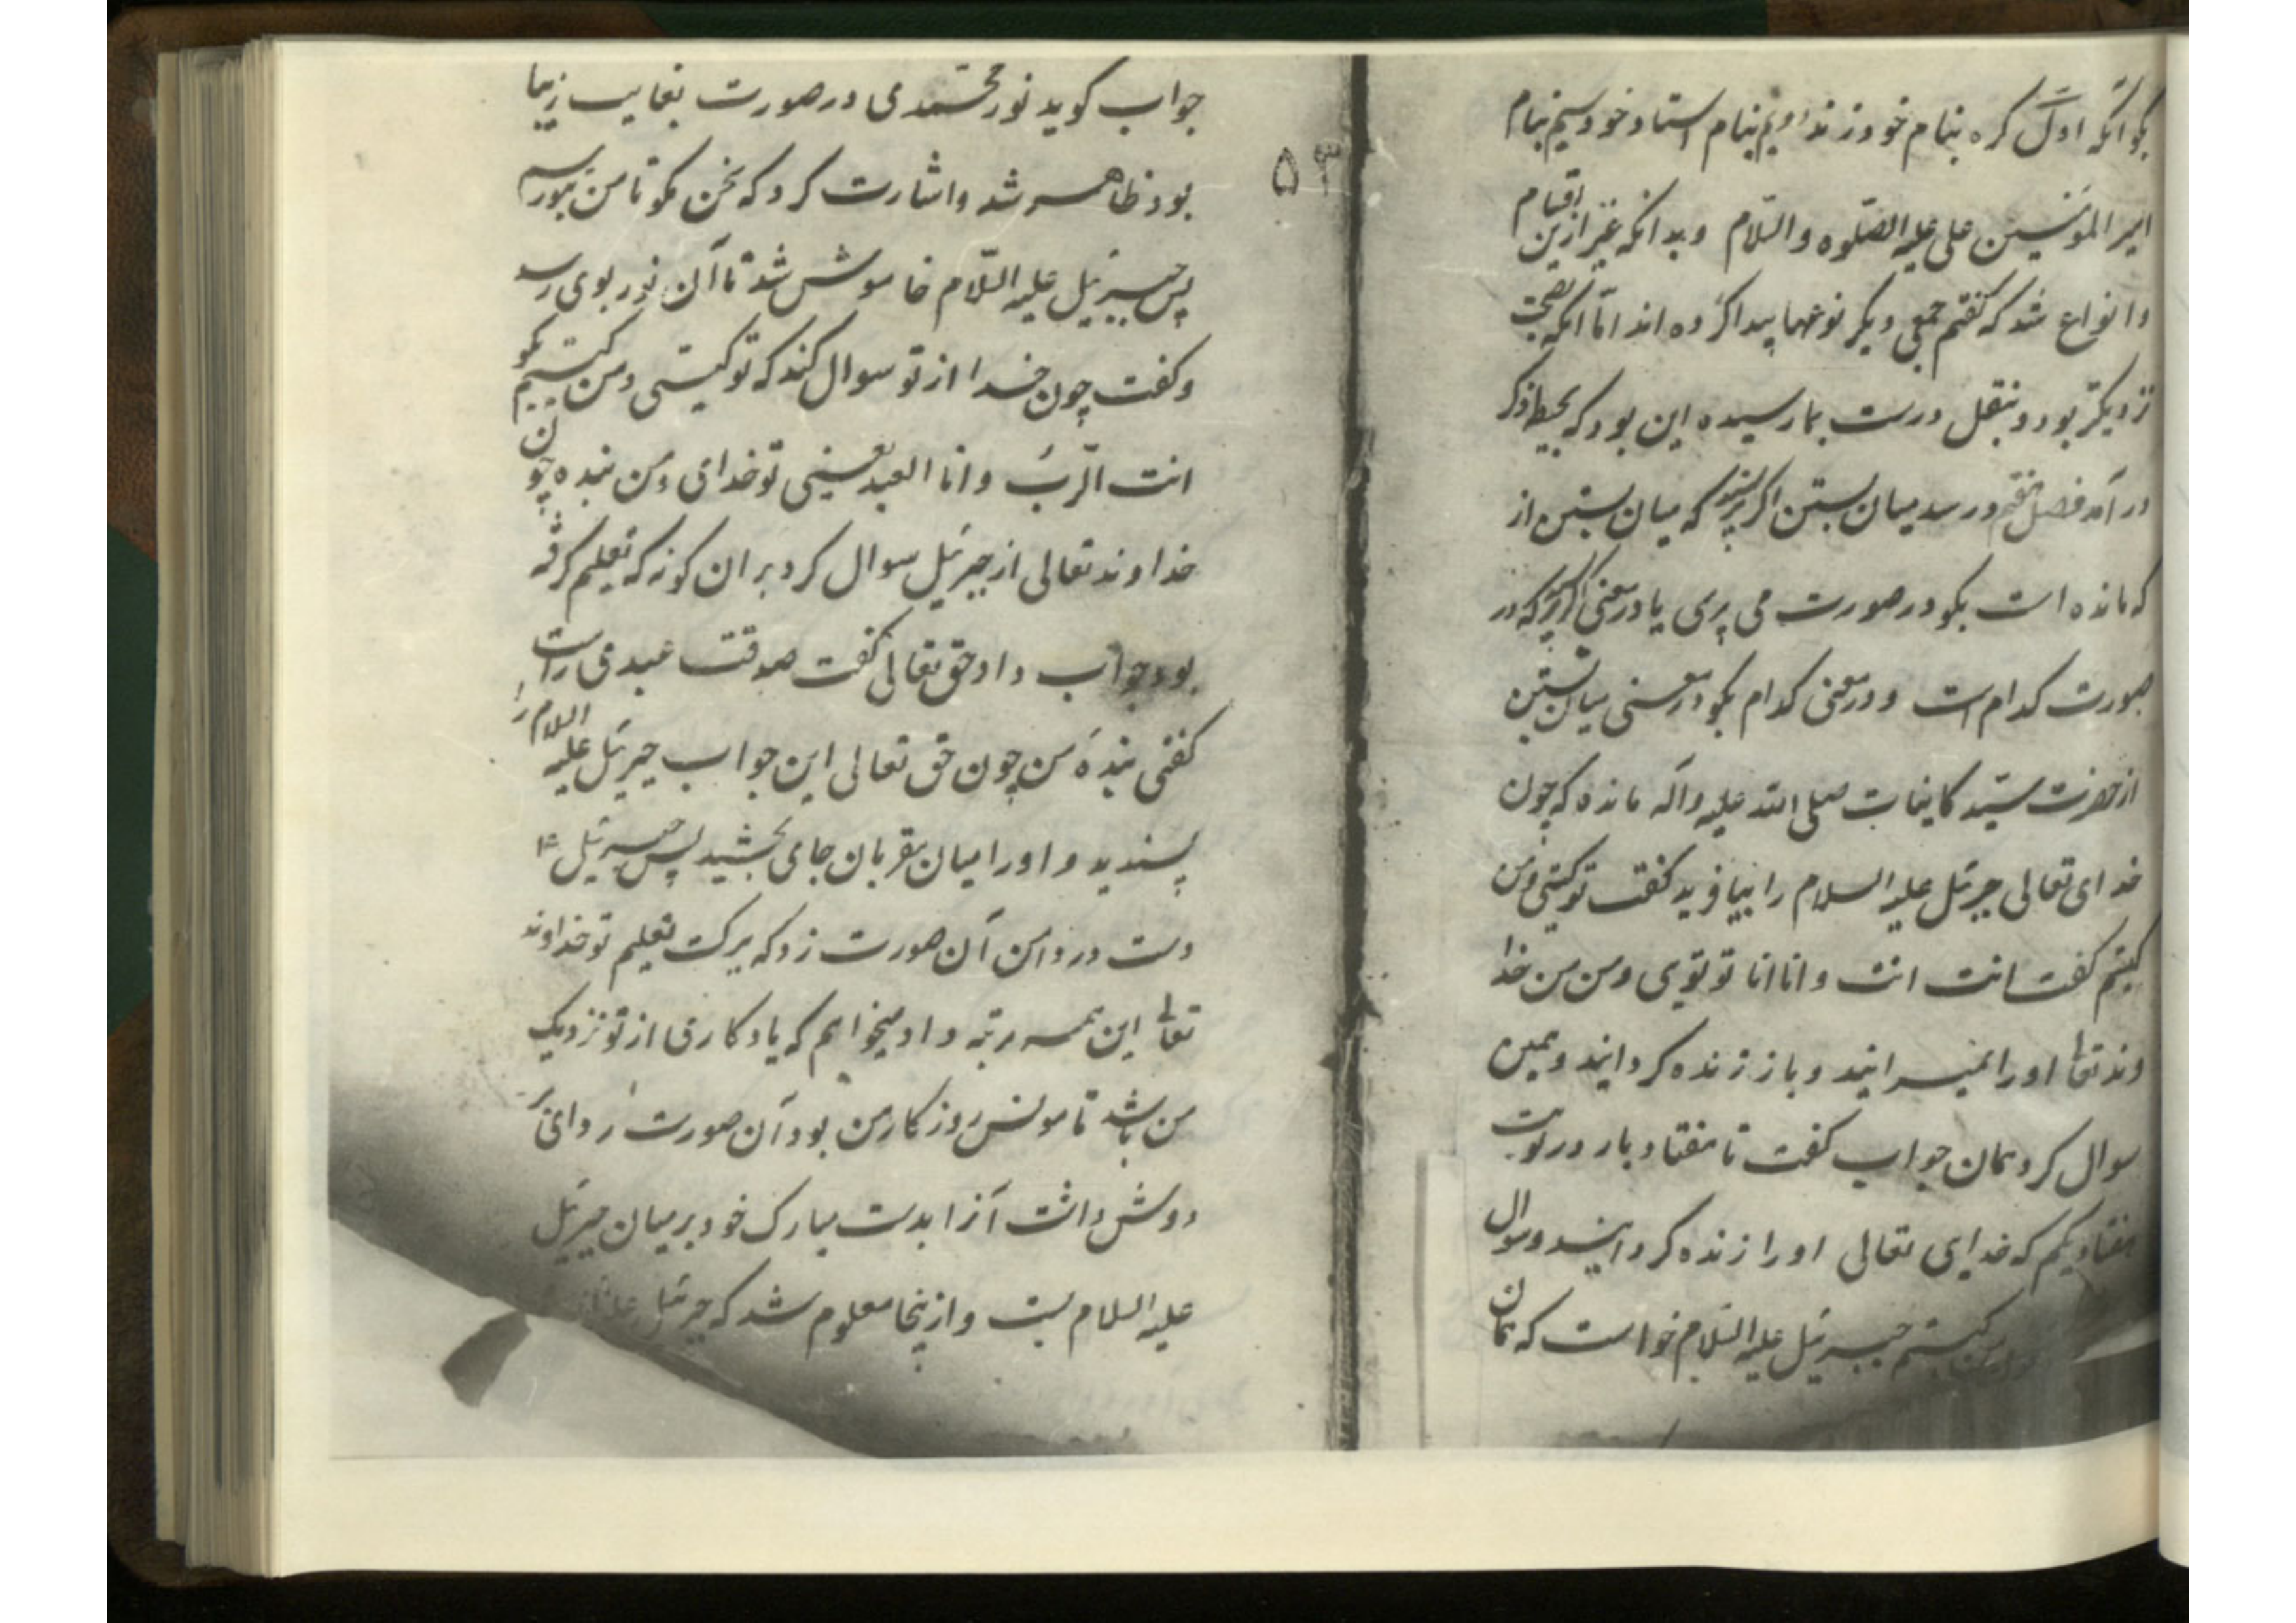 بکو آنکه اول کره بنام خود زند دویم بنام استاد خود سیم بنام
امیر المؤمنین علی علیه الصلوه والسلام وبدانکه غیر ازین اقسام
وانواع شد که کفتم جمعی دیکر نوعها پیدا کرده اند اما آنکه بصحت
نزدیکتر بود و بنقل درست بما رسیده این بود که
در آمد فصل هفتم در سد میان بستن اکر پرسند که میان بستن از
که مانده است بکو در صورت می پرسی یا در معنی اکر کوید که در
صورت کدام است و در معنی کدام بکو در معنی میان بستن
از حضرت سید کاینات صلی الله علیه وآله مانده که چون
خدای تعالی جبرئیل علیه السلام را بیافرید کفت تو کیستی ومن
کیستم کفت انت انت وانا انا تو تویی ومن من خدا
وند تعالی او را بمیرانید و باز زنده کردانید و همین
سوال کرد همان جواب کفت تا هفتاد بار در نوبت
هفتاد یکم که خدای تعالی او را زنده کردانید وسوال
کیستم جبرئیل علیه السلام خواست که همان
۵۳
جواب کوید نور محمدی در صورت بغایب زیبا
بود ظاهر شد واشارت کرد که سخن مکو تا من بتو رسم
پس جبرئیل علیه السلام خاموش شد تا آن نور بوی رسد
وکفت چون خدا از تو سوال کند که تو کیستی ومن کیستیم بکو
انت الرب وانا العبد یعنی تو خدای ومن بنده چون
خداوند تعالی از جبرئیل سوال کرد بر ان کونه که تعلیم کرفته
بود جواب داد حق تعالی کفت صدقت عبدی راست
کفتی بندهٔ من چون حق تعالی این جواب جبرئیل علیه السلام را
پسندید و او را میان مقربان جای بخشید پس جبرئیل ع
دست در دامن آن صورت زد که ببرکت تعلیم تو خداوند
تعالی این همه رتبه داد میخواهم که یادکاری از تو نزدیک
من باشد تا مونس روزکار من بود آن صورت ردایی
دوش داشت آنرا بدست مبارک خود بر میان جبرئیل
علیه السلام بست و از ینجا معلوم شد که جبرئیل